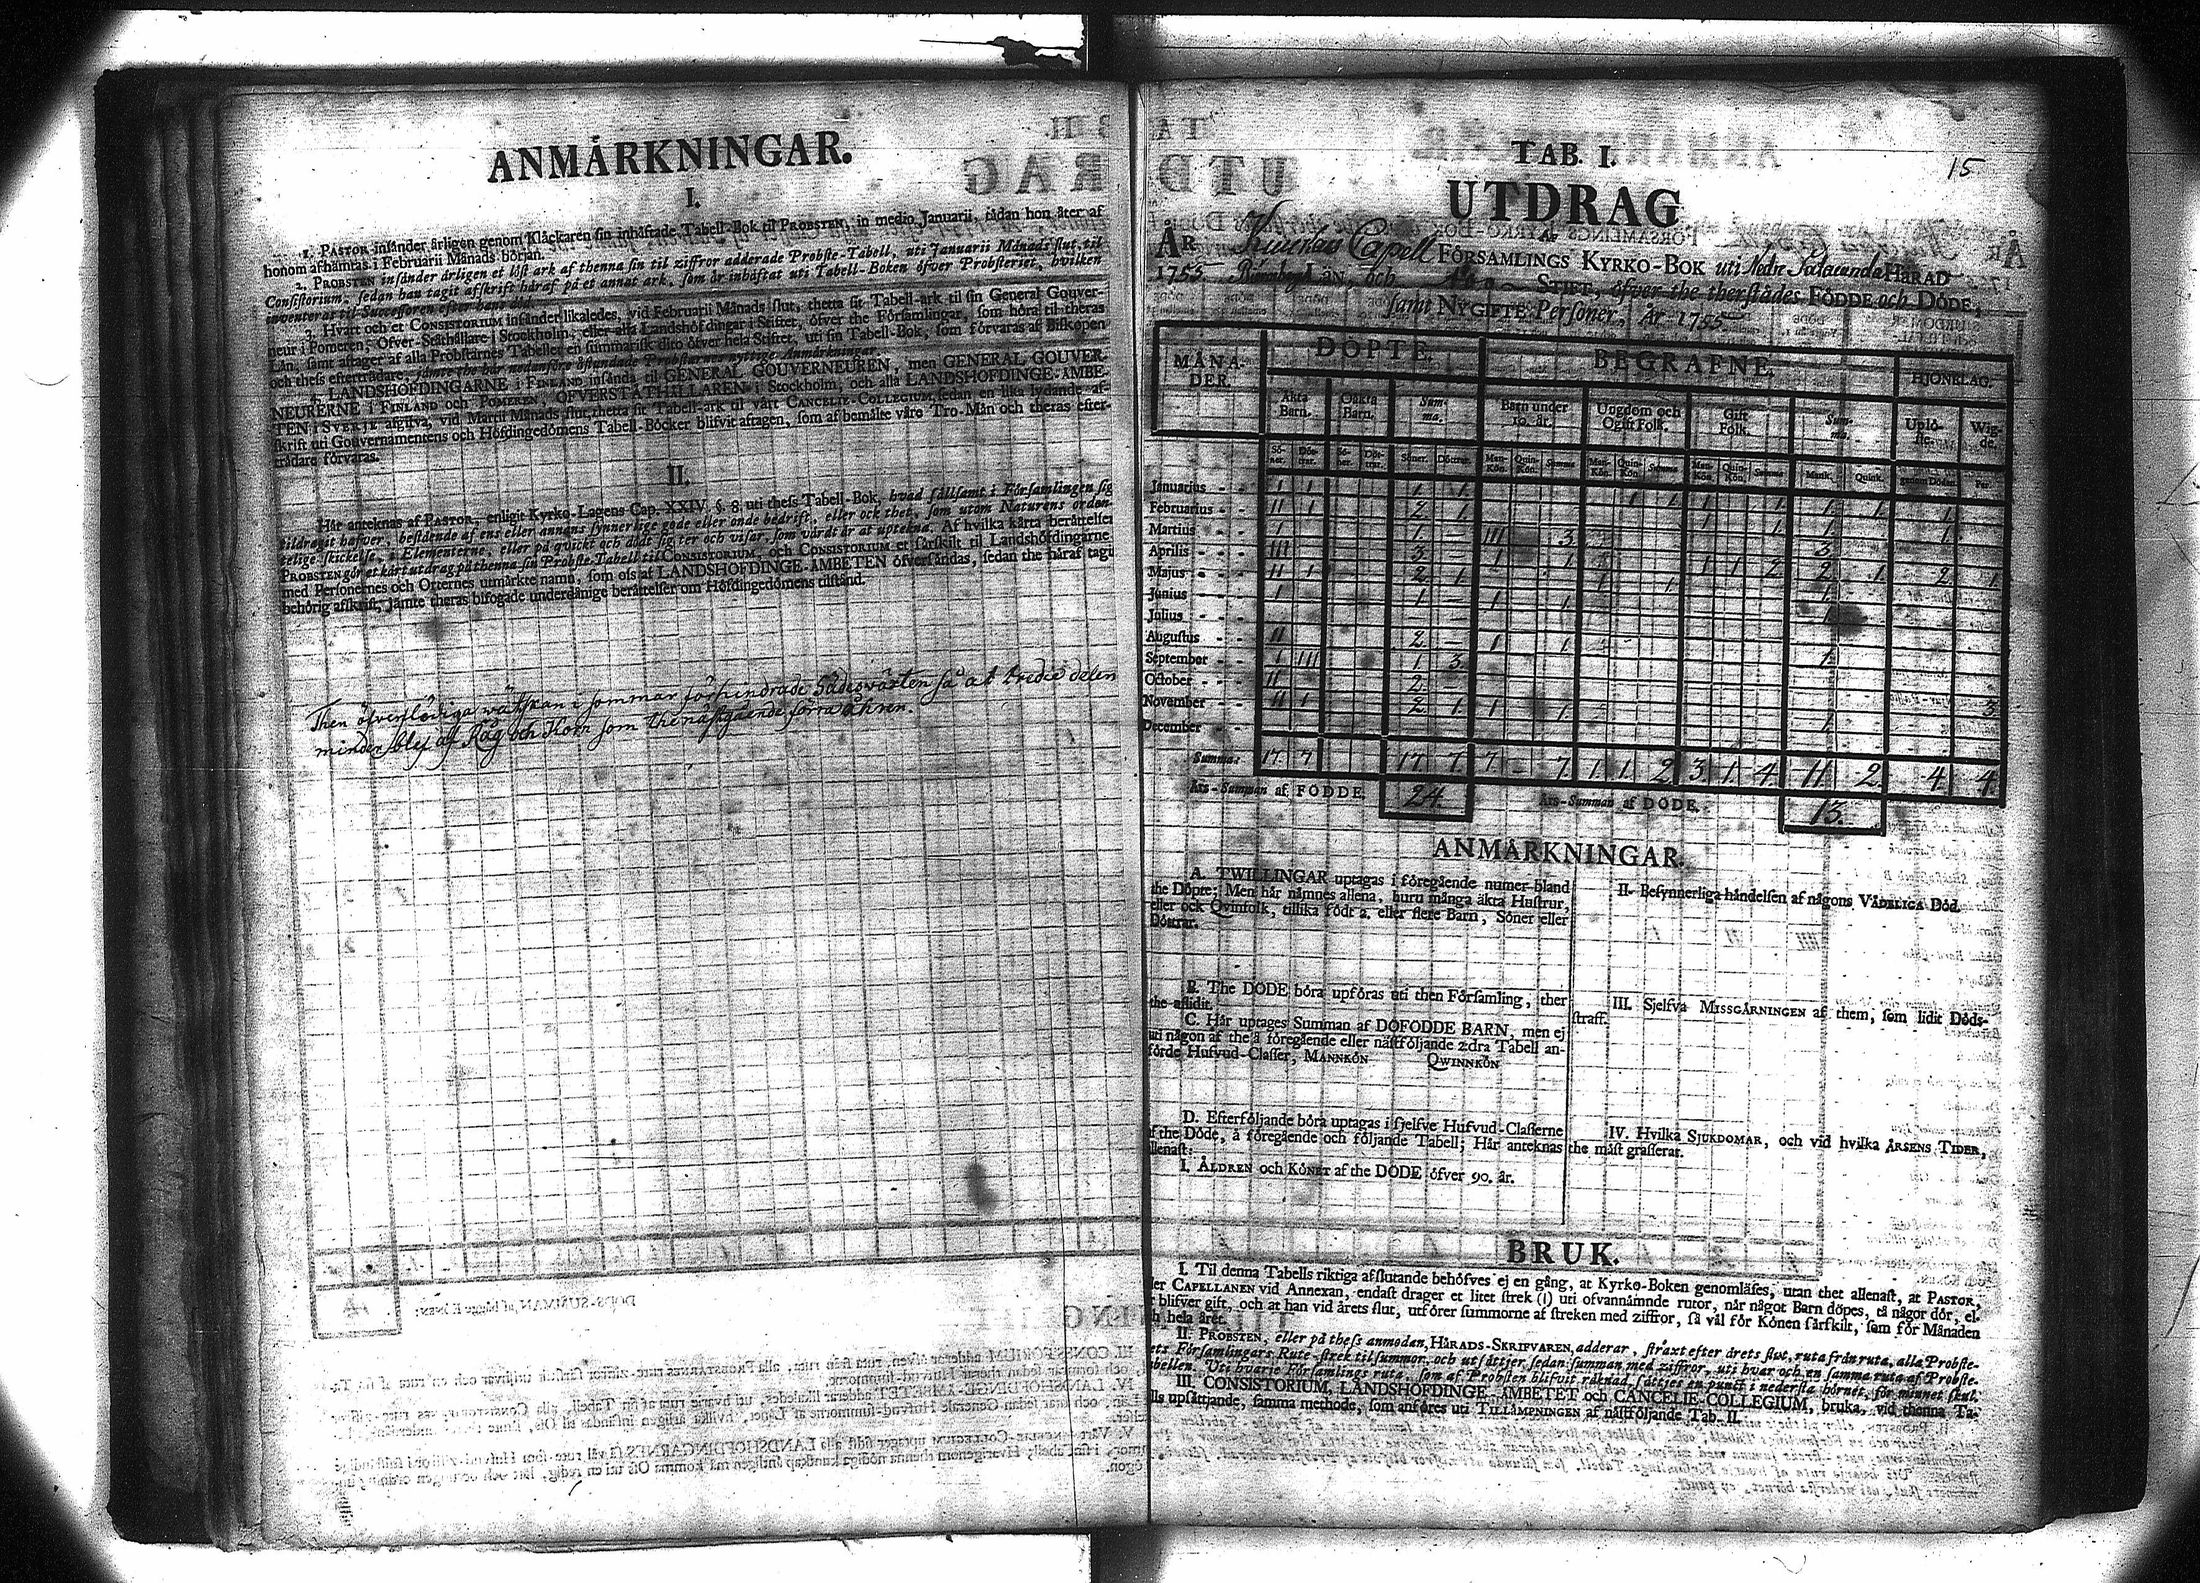 ANMÅRKNINGAR.
I.
1. PASTOR insånder årligen genom Klåckaren sin inhåftade Tabell-Bok til PROBSTEN, in medio Januarii, sådan hon åter af
honom afhåmtas i Februarii Månads början.
2. PROBSTEN insånder årligen et löst ark af thenna sin til ziffror adderade Probste-Tabell, uti Januarii Månads slut, til
Consistorium, sedan han tagit afskrift håraf på et annat ark, som år inhåftat uti Tabell-Boken öfver Probsteriet, hvilken
inventeras til Successoren efter hans död.
3. Hvart och et CONSISTORIUM insånder likaledes, vid Februarii Månads slut, thetta sit Tabell-ark til sin General Gouver-
neur i Pomeren, Öfver-Ståthållare i Stockholm, eller alla Landshöfdingar i Stiftet, öfver the Församlingar, som höra til theras
Lån, samt aftager af alla Probstarnes Tabeller en summarisk dito öfver hela Stiftet, uti sin Tabell-Bok, som förvaras af Biskopen
och thess eftertrådare, jåmte the hår nedanföre åstundade Probstarnes nyttige Anmårkningar.
4. LANDSHÖFDINGARNE i FINLAND insånda til GENERAL GOUVERNEUREN, men GENERAL GOUVER-
NEURERNE i FINLAND och POMEREN, ÖFVERSTÅTHÅLLAREN i Stockholm, och alla LANDSHÖFDINGE-ÅMBE-
TEN i SVERJE afgifva, vid Martii Månads slut, thetta sit Tabell-ark til vårt CANCELIE-COLLEGIUM, sedan en lika lydande af-
skrift uti Gouvernamentens och Höfdingedömens Tabell-Böcker blifvit aftagen, som af bemålte våro Tro-Mån och theras efter-
trådare förvaras.
II.
Hår anteknas af PASTOR, enligit Kyrko-Lagens Cap. XXIV. §. 8. uti thess Tabell-Bok, hvad sållsamt i Församlingen sig
tildragit hafver, bestående af ens eller annans synnerlige gode eller onde bedrift, eller ock thet, som utom Naturens orden-
telige skickelse, i Elementerne, eller på qvickt och dödt sig ter och visar, som vårdt år at uptekna. Af hvilka kårta beråttelser
PROBSTEN gör et kårt utdrag på thenna sin Probste-Tabell til CONSISTORIUM, och CONSISTORIUM et sårskilt til Landshöfdingarne
med Personernes och Orternes utmårkte namn, som oss af LANDSHÖFDINGE-ÅMBETEN öfversåndas, sedan the håraf tagit
behörig afskrift, jåmte theras bifogade underdånige beråttelser om Höfdingedömens tilstånd.
Then öfverflödiga wåtskan i sommar förhindrade Sädeswäxten så at tredie delen
minder blef af Råg och Korn som the nåstgående förra åhren.
15
TAB. I.
UTDRAG
ÅR Capell FÖRSAMLINGS KYRKO-BOK uti Nedre HÅRAD
1755. LÅN, och Åbo STIFT, öfver the therstådes FÖDDE och DÖDE,
samt NYGIFTE Personer, År 1755.
MÅNA-DER. DÖPTE. BEGRAFNE. HJONELAG.
Åkta Barn. Oåkta Barn. Sum-ma. Barn under 10. år. Ungdom och Ogift Folk. Gift Folk. Sum-ma. Uplö-ste. Wig-de.
Sö-ner. Döt-trar. Sö-ner. Döt-trar. Söner. Döttrar. Man-Kön. Quin-Kön. Summa Man-Kön. Quin-Kön. Summa Man-Kön. Quin-Kön. Summa Mank. Quink. genom Döden. Par.
Januarius - - 1 1 1. 1. 1 1 1 1. 1. 1. 1.
Februarius - - 11 1 2. 1. 1 1. 1. 1.
Martius - - 1 1. - 111 3. 3.
Aprilis - - 111 3. - 1 1. 1 1 2. 2. 1. 2. 1.
Majus - - 11 1 2. 1. 1 1. 1.
Junius - - 1 1. - 1 1. 1.
Julius - - - -
Augustus - - 11 2. - 1 1. 1.
September - - 1 111 1. 3.
October - - 11 2. -
November - - 11 1 2. 1. 1 1. 1. 3.
December - -
Summa: 17. 7. 17. 7. 7. - 7. 1. 1. 2. 3. 1. 4. 11. 2. 4. 4.
Års-Summan af FÖDDE. 24. Års-Summan af DÖDE. 13.
ANMÅRKNINGAR.
A. TWILLINGAR uptagas i föregående numer bland
the Döpte; Men hår nåmnes allena, huru många åkta Hustrur,
eller ock Qvinfolk, tillika födt 2. eller flere Barn, Söner eller
Döttrar.
B. The DÖDE böra upföras uti then Församling, ther
the aflidit.
C. Hår uptages Summan af DÖFÖDDE BARN, men ej
uti någon af the å föregående eller nåstföljande 2dra Tabell an-
förde Hufvud-Classer, MANNKÖN QWINNKÖN
D. Efterföljande böra uptagas i sjelfve Hufvud-Classerne
af the Döde, å föregående och följande Tabell; Hår anteknas
allenast:
I. ÅLDREN och KÖNET af the DÖDE öfver 90. år.
II. Besynnerliga håndelsen af någons VÅDELIGA Död.
III. Sjelfva MISSGÅRNINGEN af them, som lidit Döds-
straff.
IV. Hvilka SJUKDOMAR, och vid hvilka ÅRSENS TIDER,
the måst grasserat.
BRUK.
I. Til denna Tabells riktiga afslutande behöfves ej en gång, at Kyrko-Boken genomläses, utan thet allenast, at PASTOR,
ler CAPELLANEN vid Annexan, endast drager et litet strek (1) uti ofvannåmnde rutor, når något Barn döpes, tå någor dör, el-
r blifver gift, och at han vid årets slut, utförer summorne af streken med ziffror, så vål för Könen sårskilt, som för Månaden
h hela året.
II. PROBSTEN, eller på thess anmodan, HÅRADS-SKRIFVAREN, adderar, straxt efter årets slut, ruta från ruta, alla Probste-
ets Församlingars Rute-strek til summor, och utsåttjer sedan summan med ziffror, uti hvar och en samma ruta af Probste-
abellen. Uti hvarje Församlings ruta, som af Probsten blifvit råknad, såttjes en punct i nedersta hörnet, för minnet skul.
III. CONSISTORIUM, LANDSHÖFDINGE-ÅMBETET och CANCELIE-COLLEGIUM, bruka, vid thenna Ta-
lls upsåttjande, samma methode, som anföres uti TILLÅMPNINGEN af nåstföljande Tab. II.